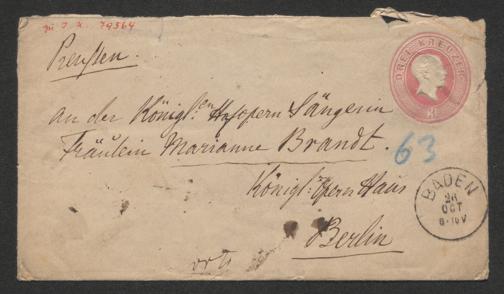 zu I. N. 79564
Preußen.
DREI KREUZER
3
An der Königl:en Hofopern Sängerin
Fräulein Marianne Brandt.
63
Königl: Opern Haus
BADEN
26
OCT
Berlin